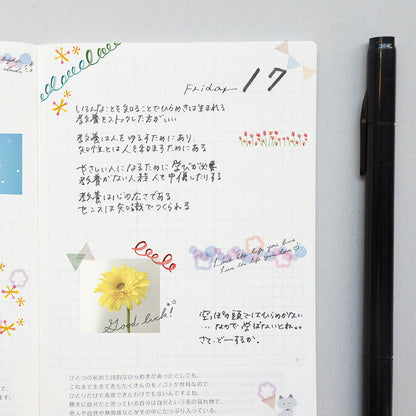 Friday 17
いろんなことを知ることでひらめきは生まれる
教養をストックした方がいい
教養は人をゆるすためにあり、
知性とは人を和ますためにある
やさしい人になるために 学びが必要
教養がない人程 人を中傷したりする
教養は心の広さである
センスは知識でつくられる
Love the life you live.
Live the life you love
Good luck!
空っぽの頭ではひらめかない
…なので学ばないとね。。
さて、どーするか。
8
ひとつの私的で詩的なひらめきがあったとしても、
これまで生きてきたたくさんのモノコトが材料なので、
ひとりだけで素敵できたわけでもないんですよね。
勝手に自分だと思っている自分は自分という名の容れ物で、
他人や自然や無関係などが体の中にたっぷり入っている。